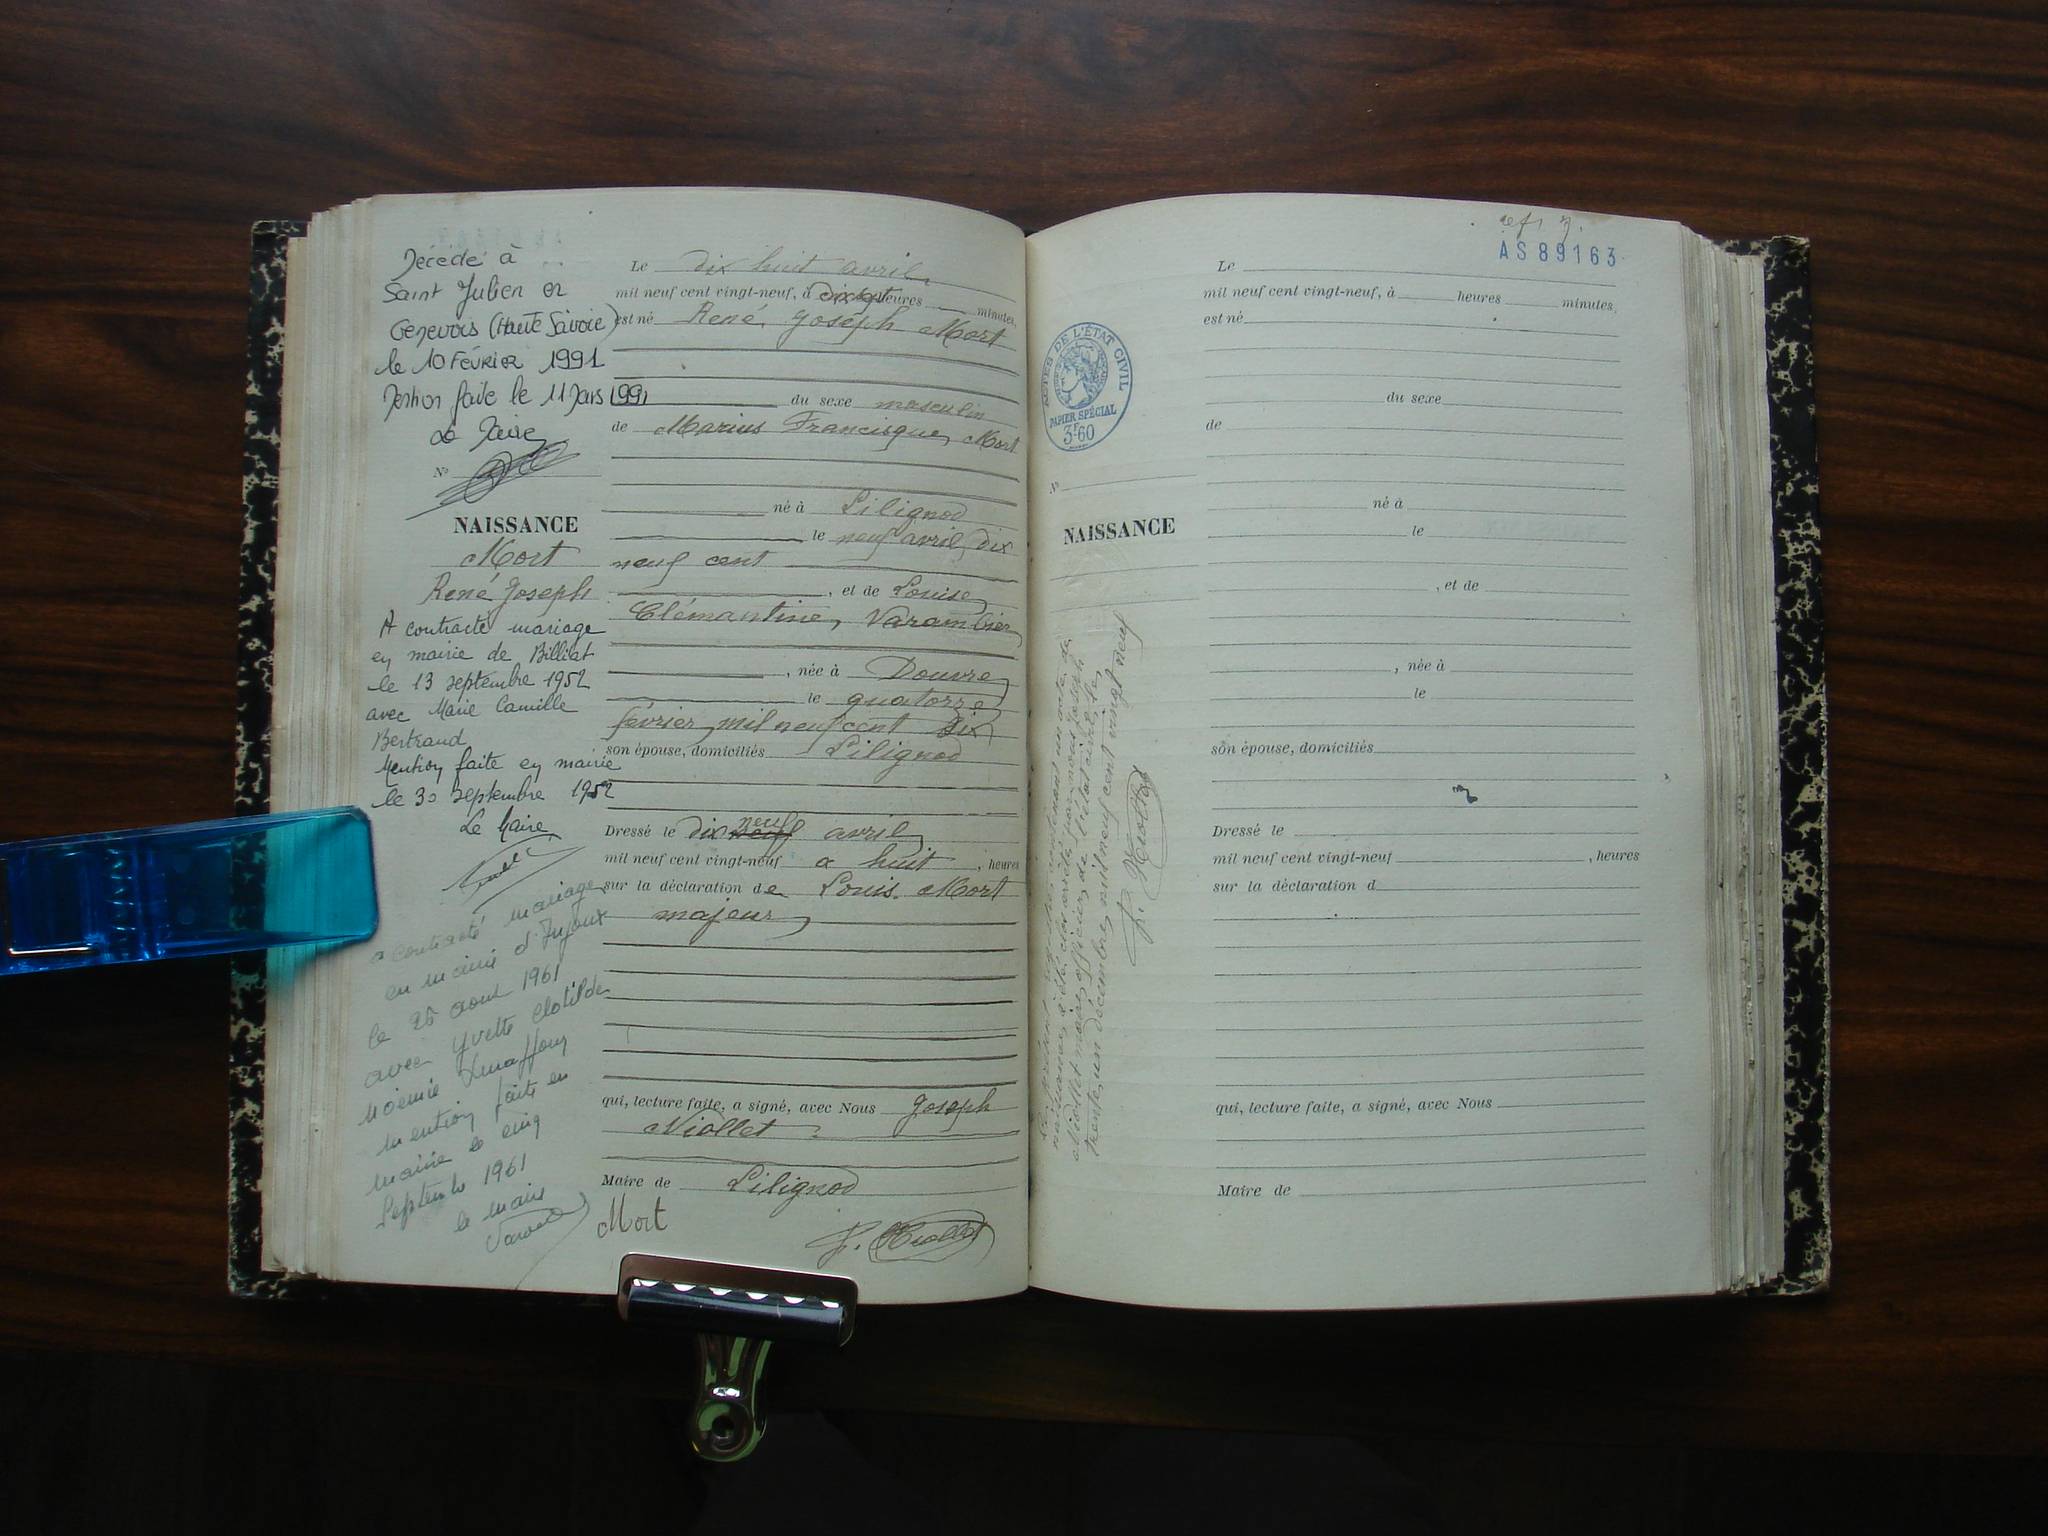 Décédé à
Saint Julien en
Genevois (Haute Savoie)
le 10 FÉVRIER 1991
faite le 11 1991
Le
N°
NAISSANCE
Mort
René Joseph
A contracté mariage
en mairie de Billiat
le 13 septembre 1952
avec Marie Camille
Bertrand
Mention faite en mairie
le 30 septembre 1952
Le Maire
a contracté mariage
en mairie d'Injoux
le 26 aout 1961
avec Yvette Clotilde
Noémie
mention faite en
mairie le cinq
Septembre 1961
le maire
Le dix huit avril
mil neuf cent vingt-neuf, à heures minutes,
est né René, Joseph Mort
du sexe masculin
de Marius Francisque, Mort
né à Lilignod
le neuf avril, dix
neuf cent
, et de Louise,
Clémantine, Varambier,
, née à Douvre,
le quatorze
février, mil neuf cent dix
son épouse, domiciliés Lilignod
Dressé le dix neuf avril,
mil neuf cent vingt-neuf a huit , heures
sur la déclaration de Louis Mort
majeur,
qui, lecture faite, a signé, avec Nous Joseph
Niollet
Maire de Lilignod
Mort
J. Niollet
AS 89163
ACTES DE L'ÉTAT CIVIL
PAPIER SPÉCIAL
3F60
N°
NAISSANCE
Le présent registre contenant un acte de
naissance, a été clos arrêté par nous Joseph
Niollet maire, officier de l'état civil, le
trente, un décembre, mil neuf cent vingt neuf
J. Niollet
Le
mil neuf cent vingt-neuf, à heures minutes,
est né
du sexe
de
né à
le
, et de
, née à
le
son épouse, domiciliés
Dressé le
mil neuf cent vingt-neuf , heures
sur la déclaration d
qui, lecture faite, a signé, avec Nous
Maire de